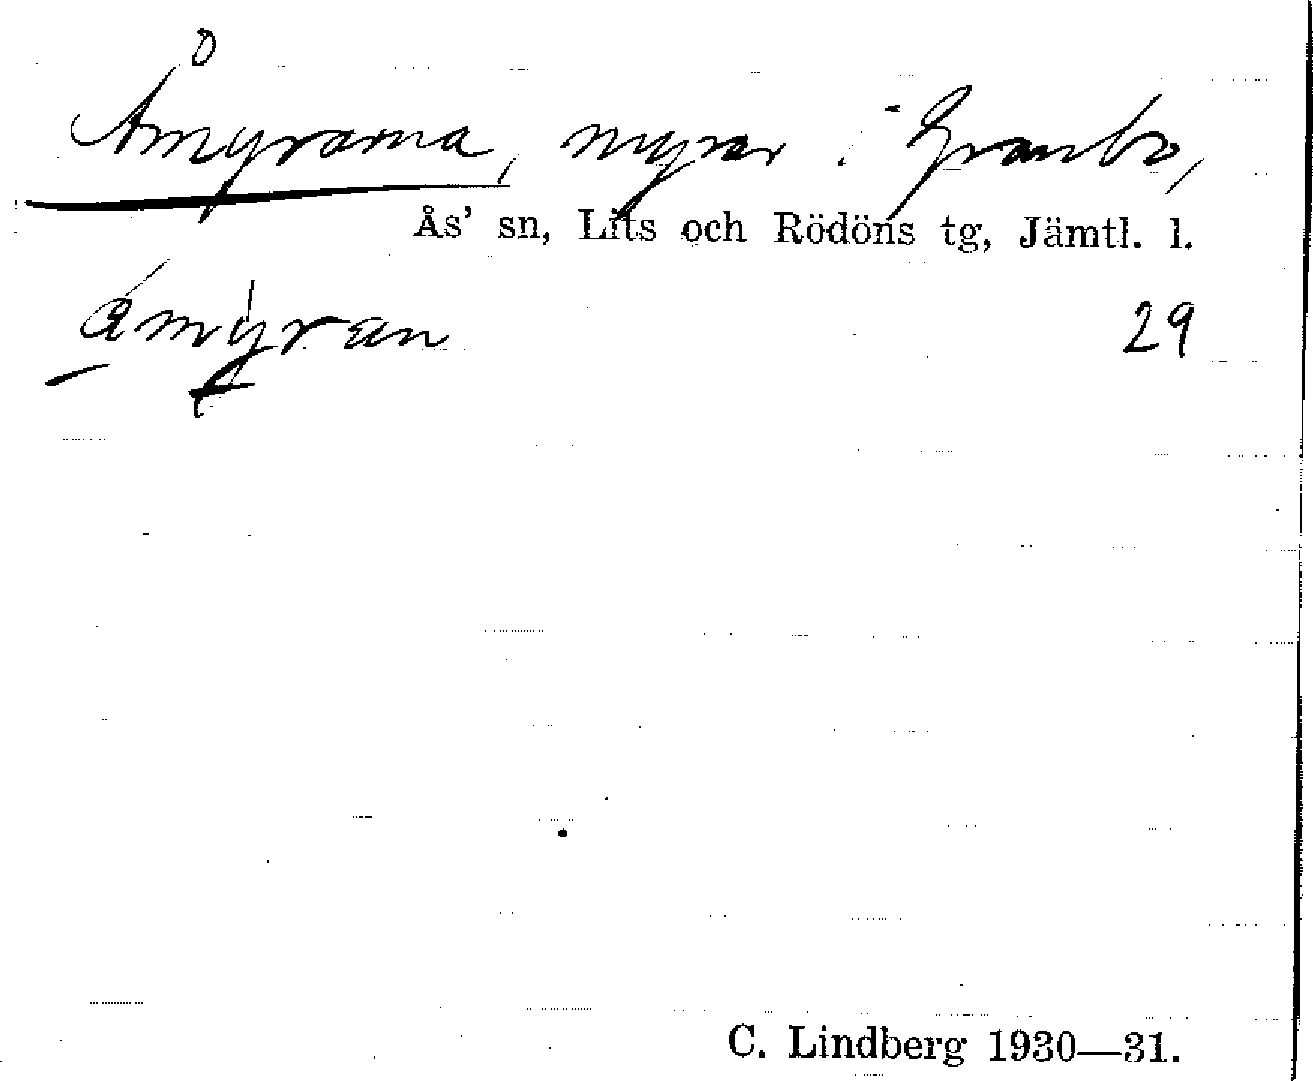 Åmyrarna, myrar i Granbo,
Ås' sn, Lits och Rödöns tg, Jämtl. l.
ámýran 29
C. Lindberg 1930—31.